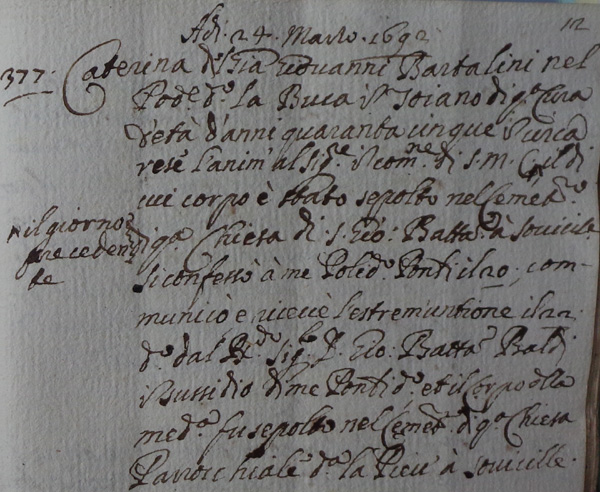 Adi. 24. Marzo. 1692
12
377. Caterina d: già Giovanni Bartalini nel
Pode. d.º la Buca in Toiano di q.ª Cura
d'età d'anni quaranta cinque in circa
rese l'anim' al Sig.re in com.ne di S.M. C. il di
cui corpo è stato sepolto nel Cemet.º
il giorno
preceden
te
di q.ª Chiesa di S. Gio: Batta. à Sovicille
si confessò à me Poled.º Ponti il 20; com-
municò e ricevè l'estrem'untione il 22
d.º dal R.do Sig.re P. Gio: Batta. Baldi
in sussidio di me Ponti d.º et il Corpo della
med.ª fu sepolto nel Cemet.º di q.ª Chiesa
Parrochiale d.ª la Pieve à Sovicille.